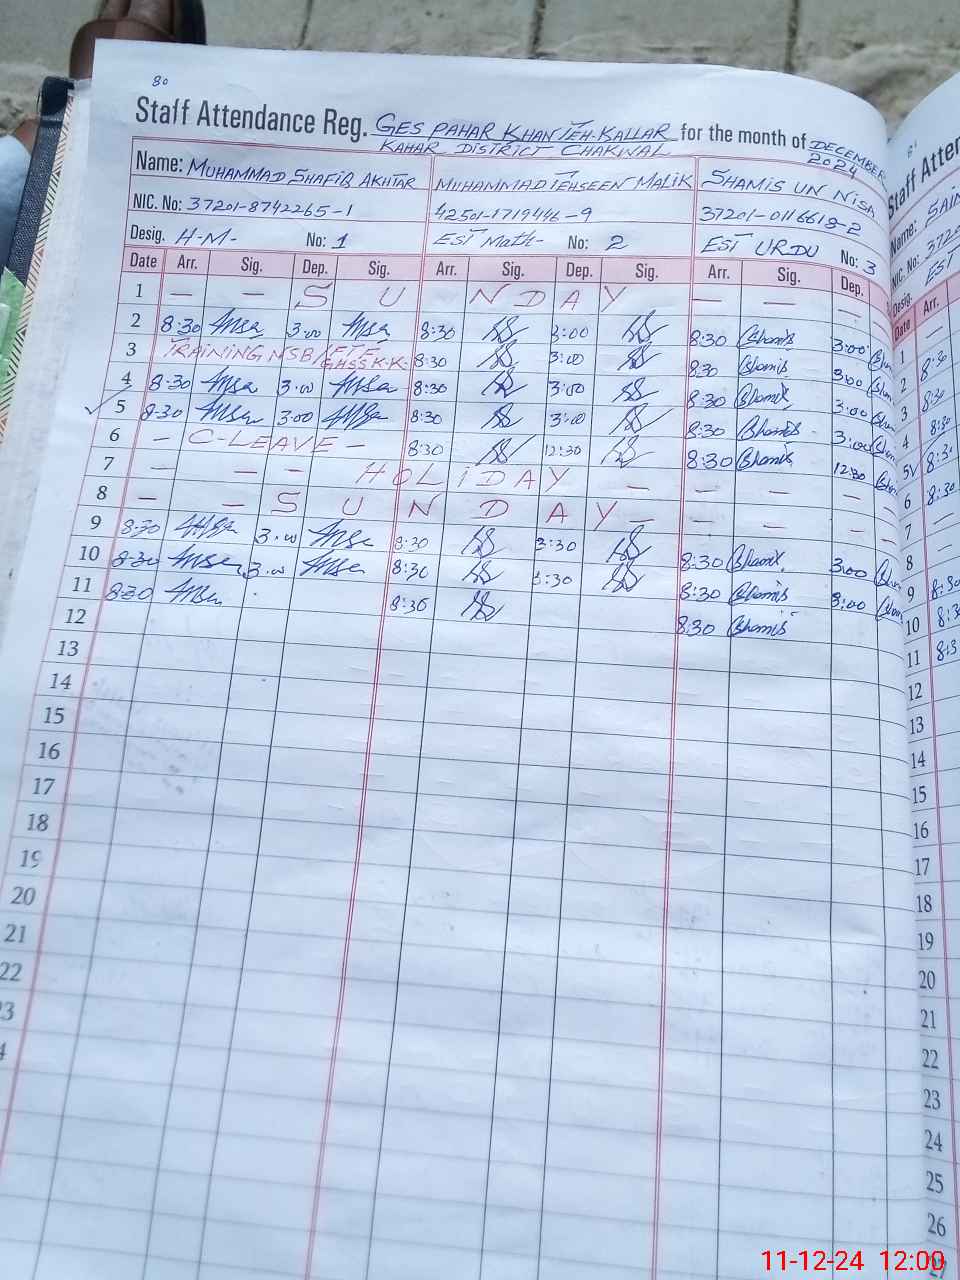 80
Staff Attendance Reg. GES PAHAR KHAN TEH-KALLAR for the month of DECEMBER
KAHAR DISTRICT CHAKWAL 2024
Name: MUHAMMAD SHAFIQ AKHTAR MUHAMMAD TEHSEEN MALIK SHAMIS UN NISA
NIC. No: 37201-8742265-1 42501-1719446-9 37201-0116618-2
Desig. H-M- No: 1 EST Math- No: 2 EST URDU No: 3
Date Arr. Sig. Dep. Sig. Arr. Sig. Dep. Sig. Arr. Sig. Dep.
1 — — S U N D A Y — —
2 8:30 3:00 8:30 3:00 8:30 Shamis 3:00
3 TRAINING NSB/FTF GHSS K-K- 8:30 3:00 8:30 Shamis 3:00
4 8:30 3:00 8:30 3:00 8:30 Shamis 3:00
5 8:30 3:00 8:30 3:00 8:30 Shamis 3:00
6 — C-LEAVE — 8:30 12:30 8:30 Shamis 12:30
7 — — — H O L I D A Y — — — —
8 — — S U N D A Y — — — —
9 8:30 3:00 8:30 3:30 8:30 Shamis 3:00
10 8:30 3:00 8:30 3:30 8:30 Shamis 3:00
11 8:30 8:30 8:30 Shamis
12
13
14
15
16
17
18
19
20
21
22
23
Staff Atten
Name: SAIN
NIC. No: 3720
Desig. EST
Date Arr.
1 —
2 8:30
3 8:30
4 8:30
5 8:30
6 8:30
7 —
8 —
9 8:30
10 8:30
11 8:3
12
13
14
15
16
17
18
19
20
21
22
23
24
25
26
27
11-12-24 12:00